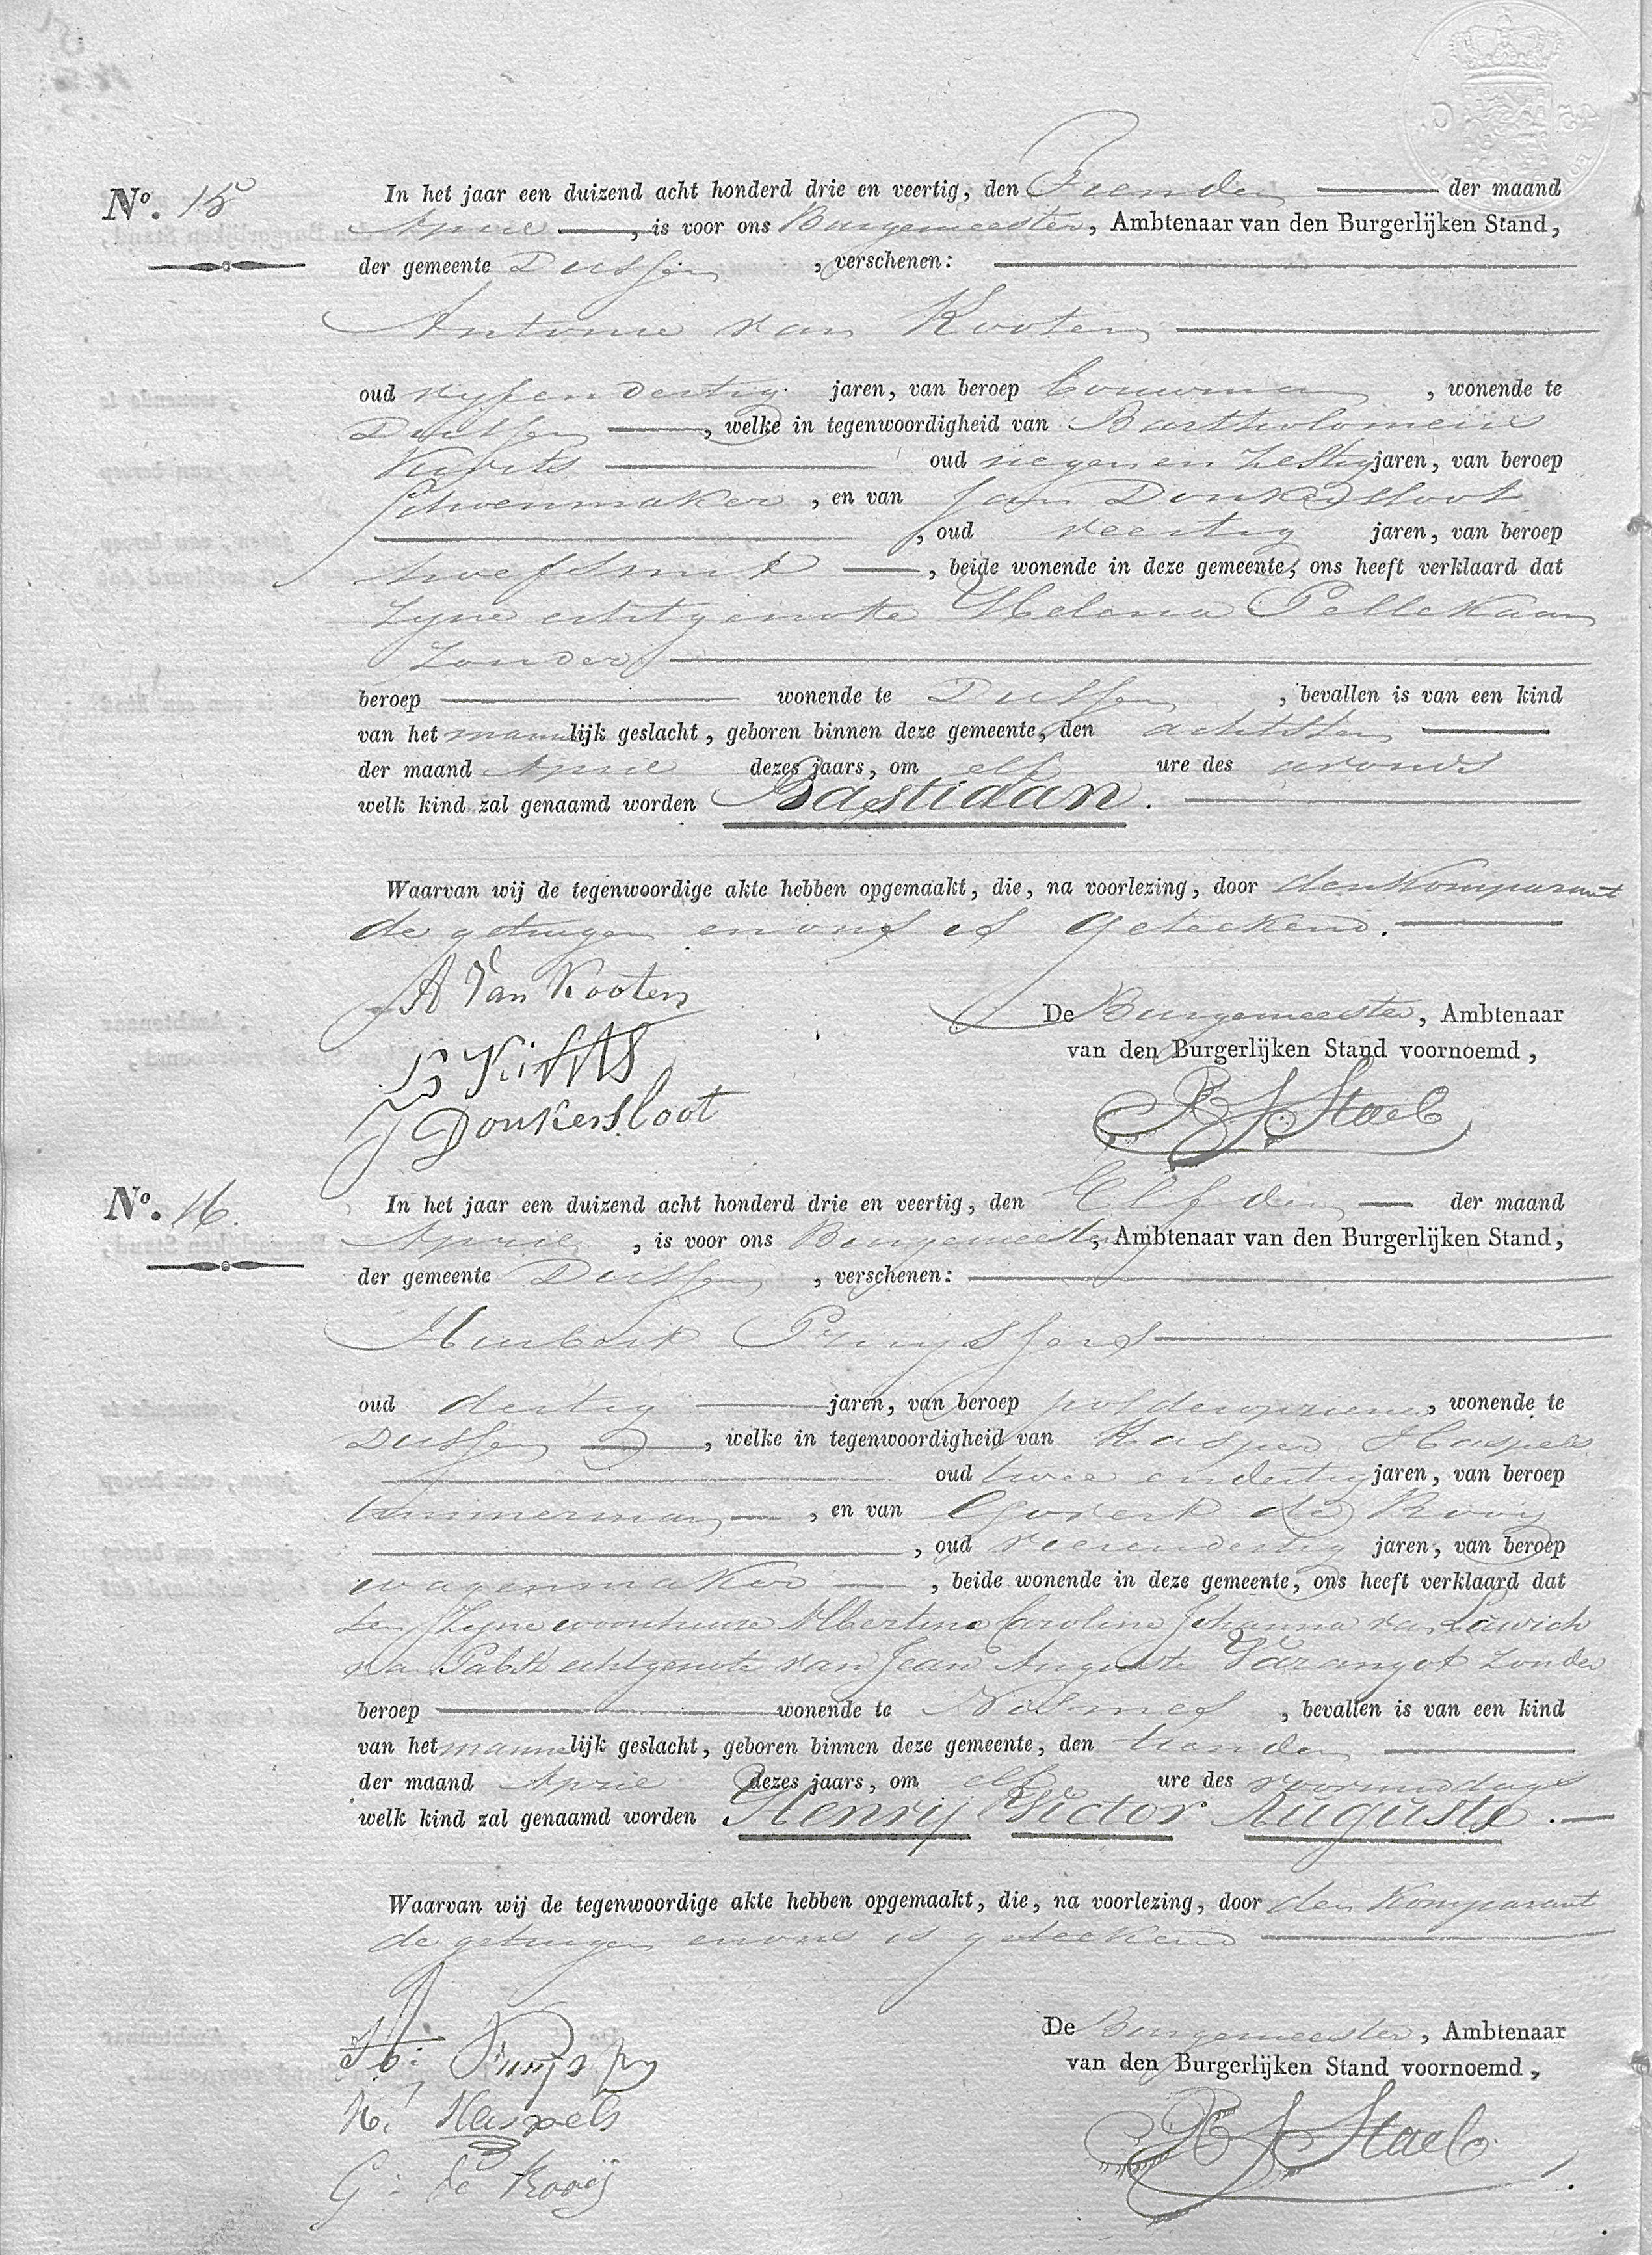 No. 15
In het jaar een duizend acht honderd drie en veertig, den Tienden der maand
April, is voor ons Burgemeester, Ambtenaar van den Burgerlijken Stand,
der gemeente Dussen, verschenen:
Antonie van Kooten
oud vijf en dertig jaren, van beroep bouwman, wonende te
Dussen, welke in tegenwoordigheid van Bartholomeus
oud negen en zestig jaren, van beroep
Schoenmaker, en van Jan Donkersloot
, oud veertig jaren, van beroep
hoefsmit, beide wonende in deze gemeente, ons heeft verklaard dat
zyne echtgenote Helena Pellekaan
zonder
beroep wonende te Dussen, bevallen is van een kind
van het mannelijk geslacht, geboren binnen deze gemeente, den achtsten
der maand April dezes jaars, om elf ure des avonds
welk kind zal genaamd worden Bastiaan.
Waarvan wij de tegenwoordige akte hebben opgemaakt, die, na voorlezing, door den Komparant
de getuigen en ons is geteekend.
A Van Kooten
De Burgemeester, Ambtenaar
van den Burgerlijken Stand voornoemd,
J Donkersloot
Stael
No. 16.
In het jaar een duizend acht honderd drie en veertig, den Elfden der maand
April, is voor ons Burgemeester, Ambtenaar van den Burgerlijken Stand,
der gemeente Dussen, verschenen:
Huibert
oud dertig jaren, van beroep, wonende te
Dussen, welke in tegenwoordigheid van Kasper Haspels
oud twee en dertig jaren, van beroep
timmerman, en van Govert de Rooij
, oud vierendertig jaren, van beroep
wagenmaker, beide wonende in deze gemeente, ons heeft verklaard dat
ten zyne woonhuize Albertine Caroline Johanna van Lawick
van Pabst echtgenote van Jean Auguste Varangot zonder
beroep wonende te Nismes, bevallen is van een kind
van het mannelijk geslacht, geboren binnen deze gemeente, den tienden
der maand April dezes jaars, om elf ure des voormiddags
welk kind zal genaamd worden Henry Victor Auguste.
Waarvan wij de tegenwoordige akte hebben opgemaakt, die, na voorlezing, door den Komparant
de getuigen en ons is geteekend
De Burgemeester, Ambtenaar
van den Burgerlijken Stand voornoemd,
K. Haspels
G: de Rooij
Stael